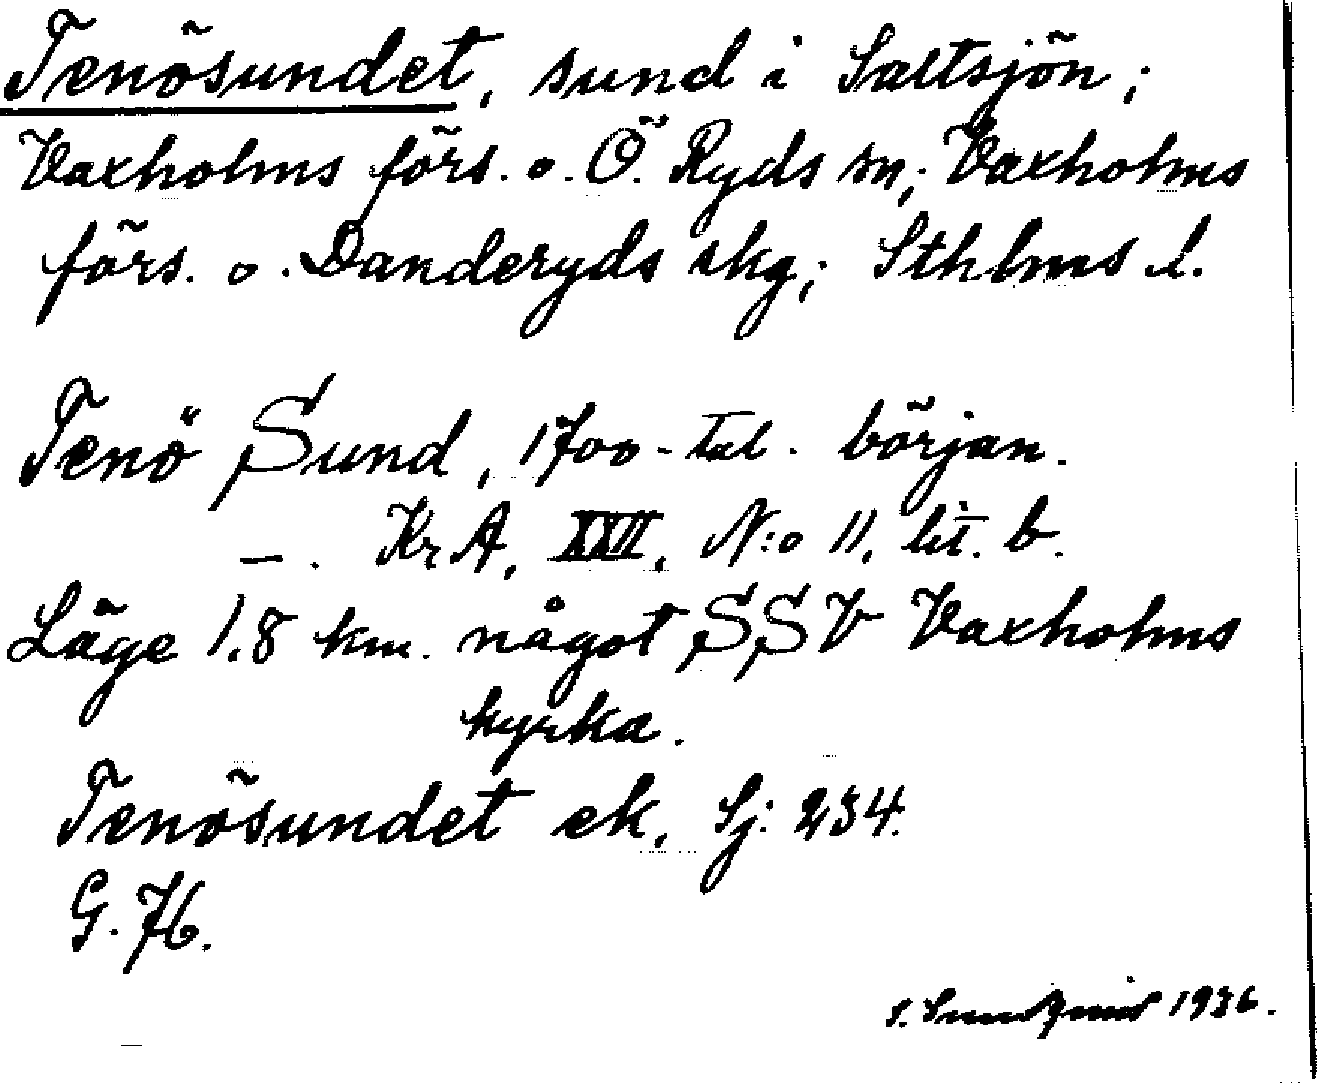 Tenösundet, sund i Saltsjön;
Vaxholms förs. o. Ö. Ryds sn; Vaxholms
förs. o. Danderyds skg; Sthlms l.
Tenö Sund, 1700-tal. början.
—. KrA, XXII, N:o 11, lit. b.
Läge 1.8 km. något SSV Vaxholms
kyrka.
Tenösundet ek, Sj: 234.
G. 76.
S. Sundquist 1936.